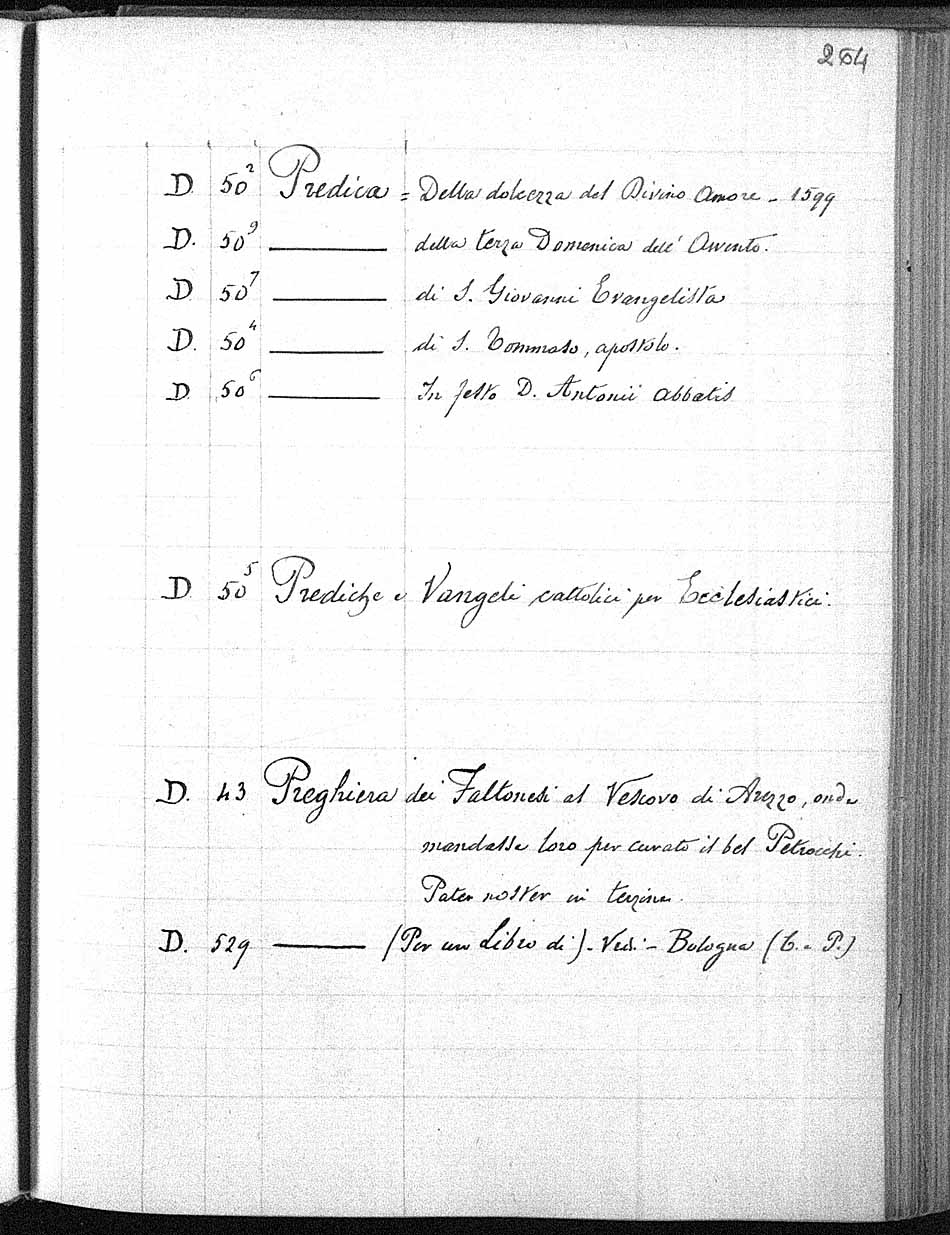 254
D. 50² Predica = Della dolcezza del Divino Amore - 1599
D. 50⁹ ——— della terza Domenica dell' Avvento.
D 50⁷ ——— di S. Giovanni Evangelista
D. 50⁴ ——— di S. Tommaso, apostolo.
D 50⁶ ——— In festo D. Antonii abbatis
D 50⁵ Prediche e Vangeli cattolici per Ecclesiastici.
D. 43 Preghiera dei Faltonesi al Vescovo di Arezzo, onde
mandasse loro per curato il bel Petrocchi.
Pater noster in terzine.
D. 529 ——— (Per un Libro di) - Vedi - Bologna (C. - P.)